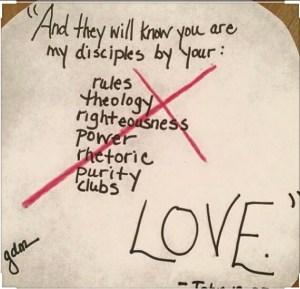 "And they will know you are
my disciples by your:
rules
theology
righteousness
power
rhetoric
purity
clubs
LOVE."
gdm